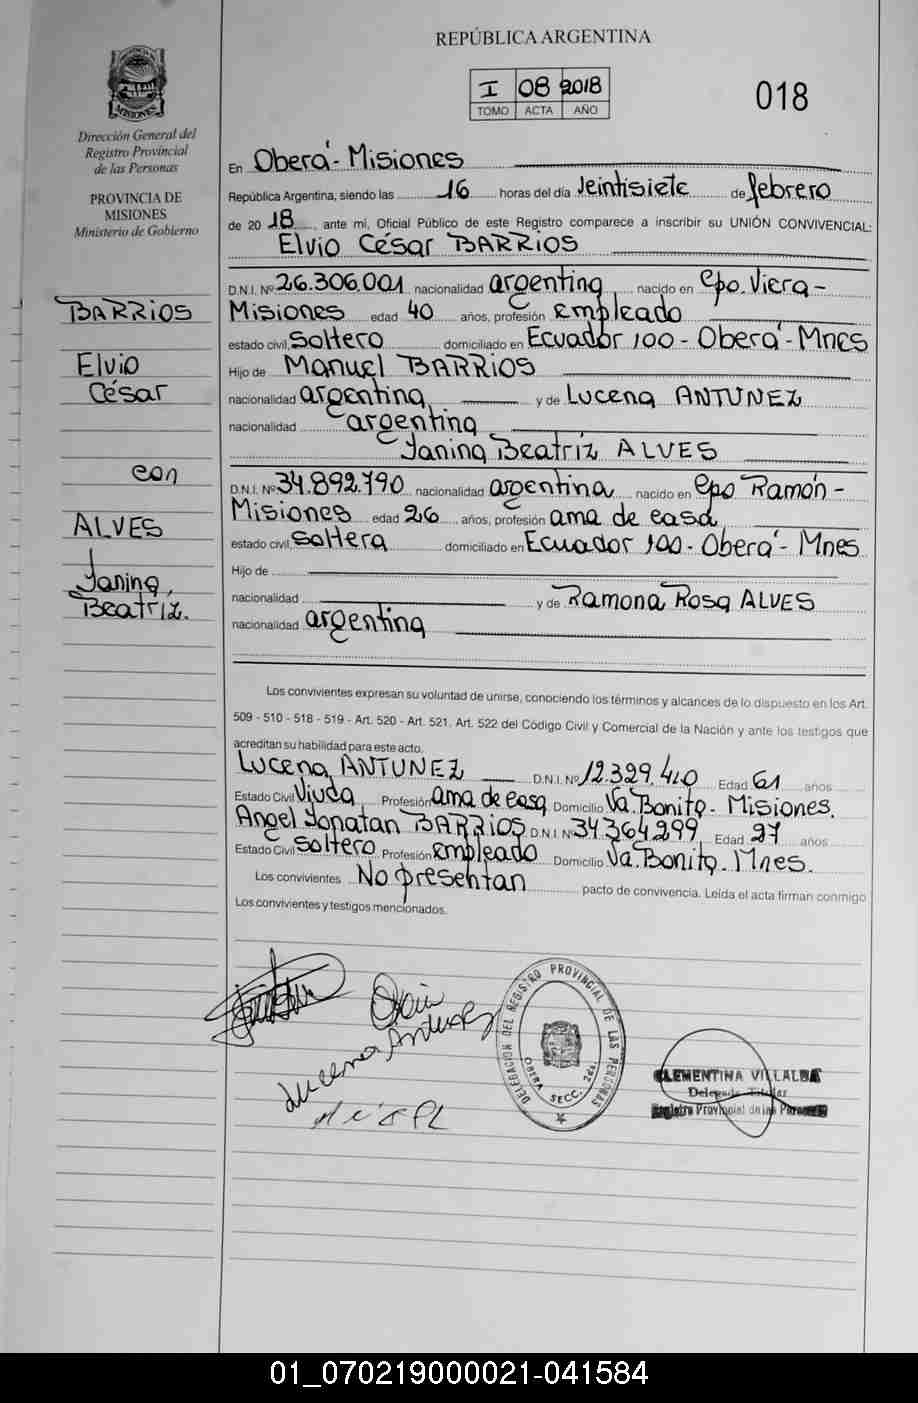 REPÚBLICA ARGENTINA
I 08 2018
TOMO ACTA AÑO
018
PROVINCIA DE MISIONES
Dirección General del
Registro Provincial
de las Personas
PROVINCIA DE
MISIONES
Ministerio de Gobierno
BARRIOS
Elvio
César
con
ALVES
Yanina,
Beatriz.
En Oberá - Misiones
República Argentina, siendo las 16 horas del día Veintisiete de febrero
de 2018, ante mi, Oficial Público de este Registro comparece a inscribir su UNIÓN CONVIVENCIAL:
Elvio César BARRIOS
D.N.I. Nº 26.306.001 nacionalidad argentina nacido en Cpo. Viera -
Misiones edad 40 años, profesión empleado
estado civil, soltero domiciliado en Ecuador 100 - Oberá - Mnes
Hijo de Manuel BARRIOS
nacionalidad argentina y de Lucena ANTUNEZ
nacionalidad argentina
Yanina Beatriz ALVES
D.N.I. Nº 34.892.790 nacionalidad argentina nacido en Cpo Ramón -
Misiones edad 26 años, profesión ama de casa
estado civil, soltera domiciliado en Ecuador 100 - Oberá - Mnes
Hijo de
nacionalidad y de Ramona Rosa ALVES
nacionalidad argentina
Los convivientes expresan su voluntad de unirse, conociendo los términos y alcances de lo dispuesto en los Art.
509 - 510 - 518 - 519 - Art. 520 - Art. 521, Art. 522 del Código Civil y Comercial de la Nación y ante los testigos que
acreditan su habilidad para este acto.
Lucena ANTUNEZ D.N.I. Nº 12.329.410 Edad 61 años
Estado Civil Viuda Profesión ama de casa Domicilio Va. Bonita - Misiones.
Angel Jonatan BARRIOS D.N.I. Nº 34.364.299 Edad 27 años
Estado Civil soltero Profesión empleado Domicilio Va. Bonita - Mnes.
Los convivientes No presentan pacto de convivencia. Leída el acta firman conmigo
Los convivientes y testigos mencionados.
Lucena Antunez
DELEGACION DEL REGISTRO PROVINCIAL DE LAS PERSONAS
OBERA SECC. 2da.
CLEMENTINA VILLALBA
Delegada Titular
Registro Provincial de las Personas
01_070219000021-041584